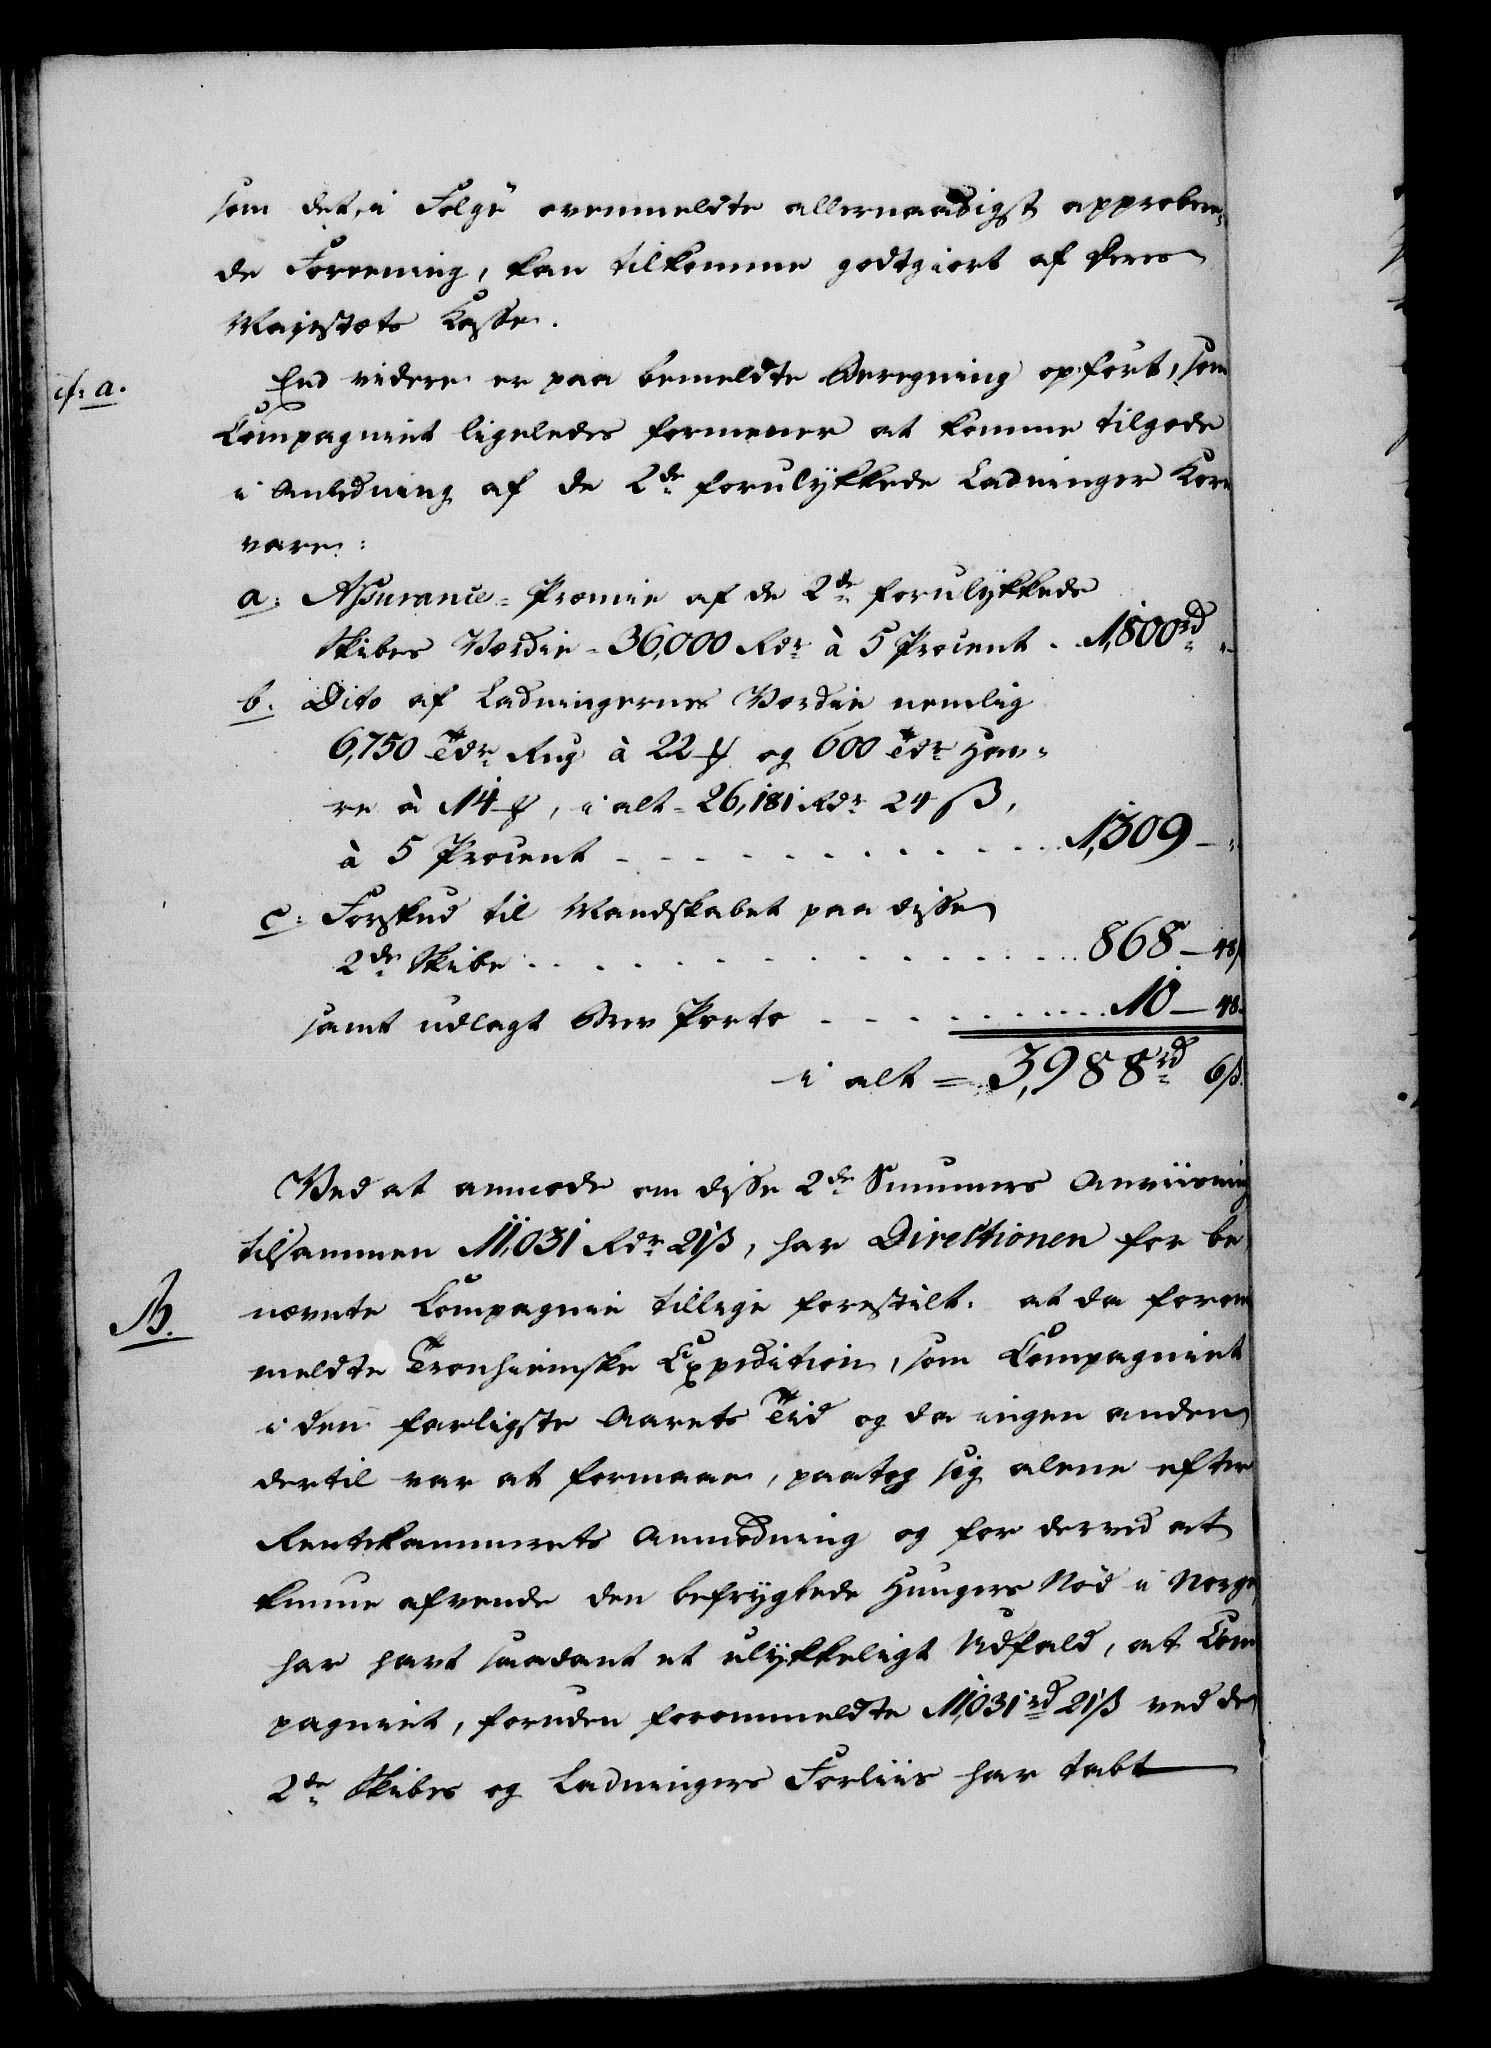 som det, i Følge ovenmeldte allernaadigst approbere-
de Foreening, kan tilkomme godtgiort af Deres
Majestæts Kasse.
cf: a.
End videre er paa bemeldte Beregning opført, som
Compagniet ligeledes formener at komme tilgode
i Anledning af de 2de forulykkede Ladninger Korn
vare:
a: Assurance-Præmie af de 2de forulykkede
Skibes Værdie - 36,000 Rdr à 5 Procent . 1,800rd "
b. Dito af Ladningernes Værdie nemlig
6,750 Tdr Rug à 22 ₰ og 600 Tdr Hav-
re à 14 ₰, i alt - 26,181 Rdr 24 ß,
à 5 Procent - - - - 1,309 - "
c: Forskud til Mandskabet paa disse
2de Skibe . . . . 868 - 48ß
samt udlagt Brev Porto - - - - 10 - 48.
i alt = 3,988rd 6ß.
Ved at anmode om disse 2de Summers Anviisning
tilsammen 11,031 Rdr 21ß, har Directionen for be
B.
nævnte Compagnie tillige forestilt: at da forom
meldte Tronhiemske Expedition, som Compagniet
i den farligste Aarets Tiid og da ingen anden
dertil var at formaae, paatog sig alene efter
Rentekammerets Anmodning og for derved at
kunne afvende den befrygtede Hungers Nød i Norge
har havt saadant et ulykkeligt Udfald, at Com
pagniet, foruden forommeldte 11,031rd 21ß ved de
2de Skibes og Ladningers Forliis har tabt